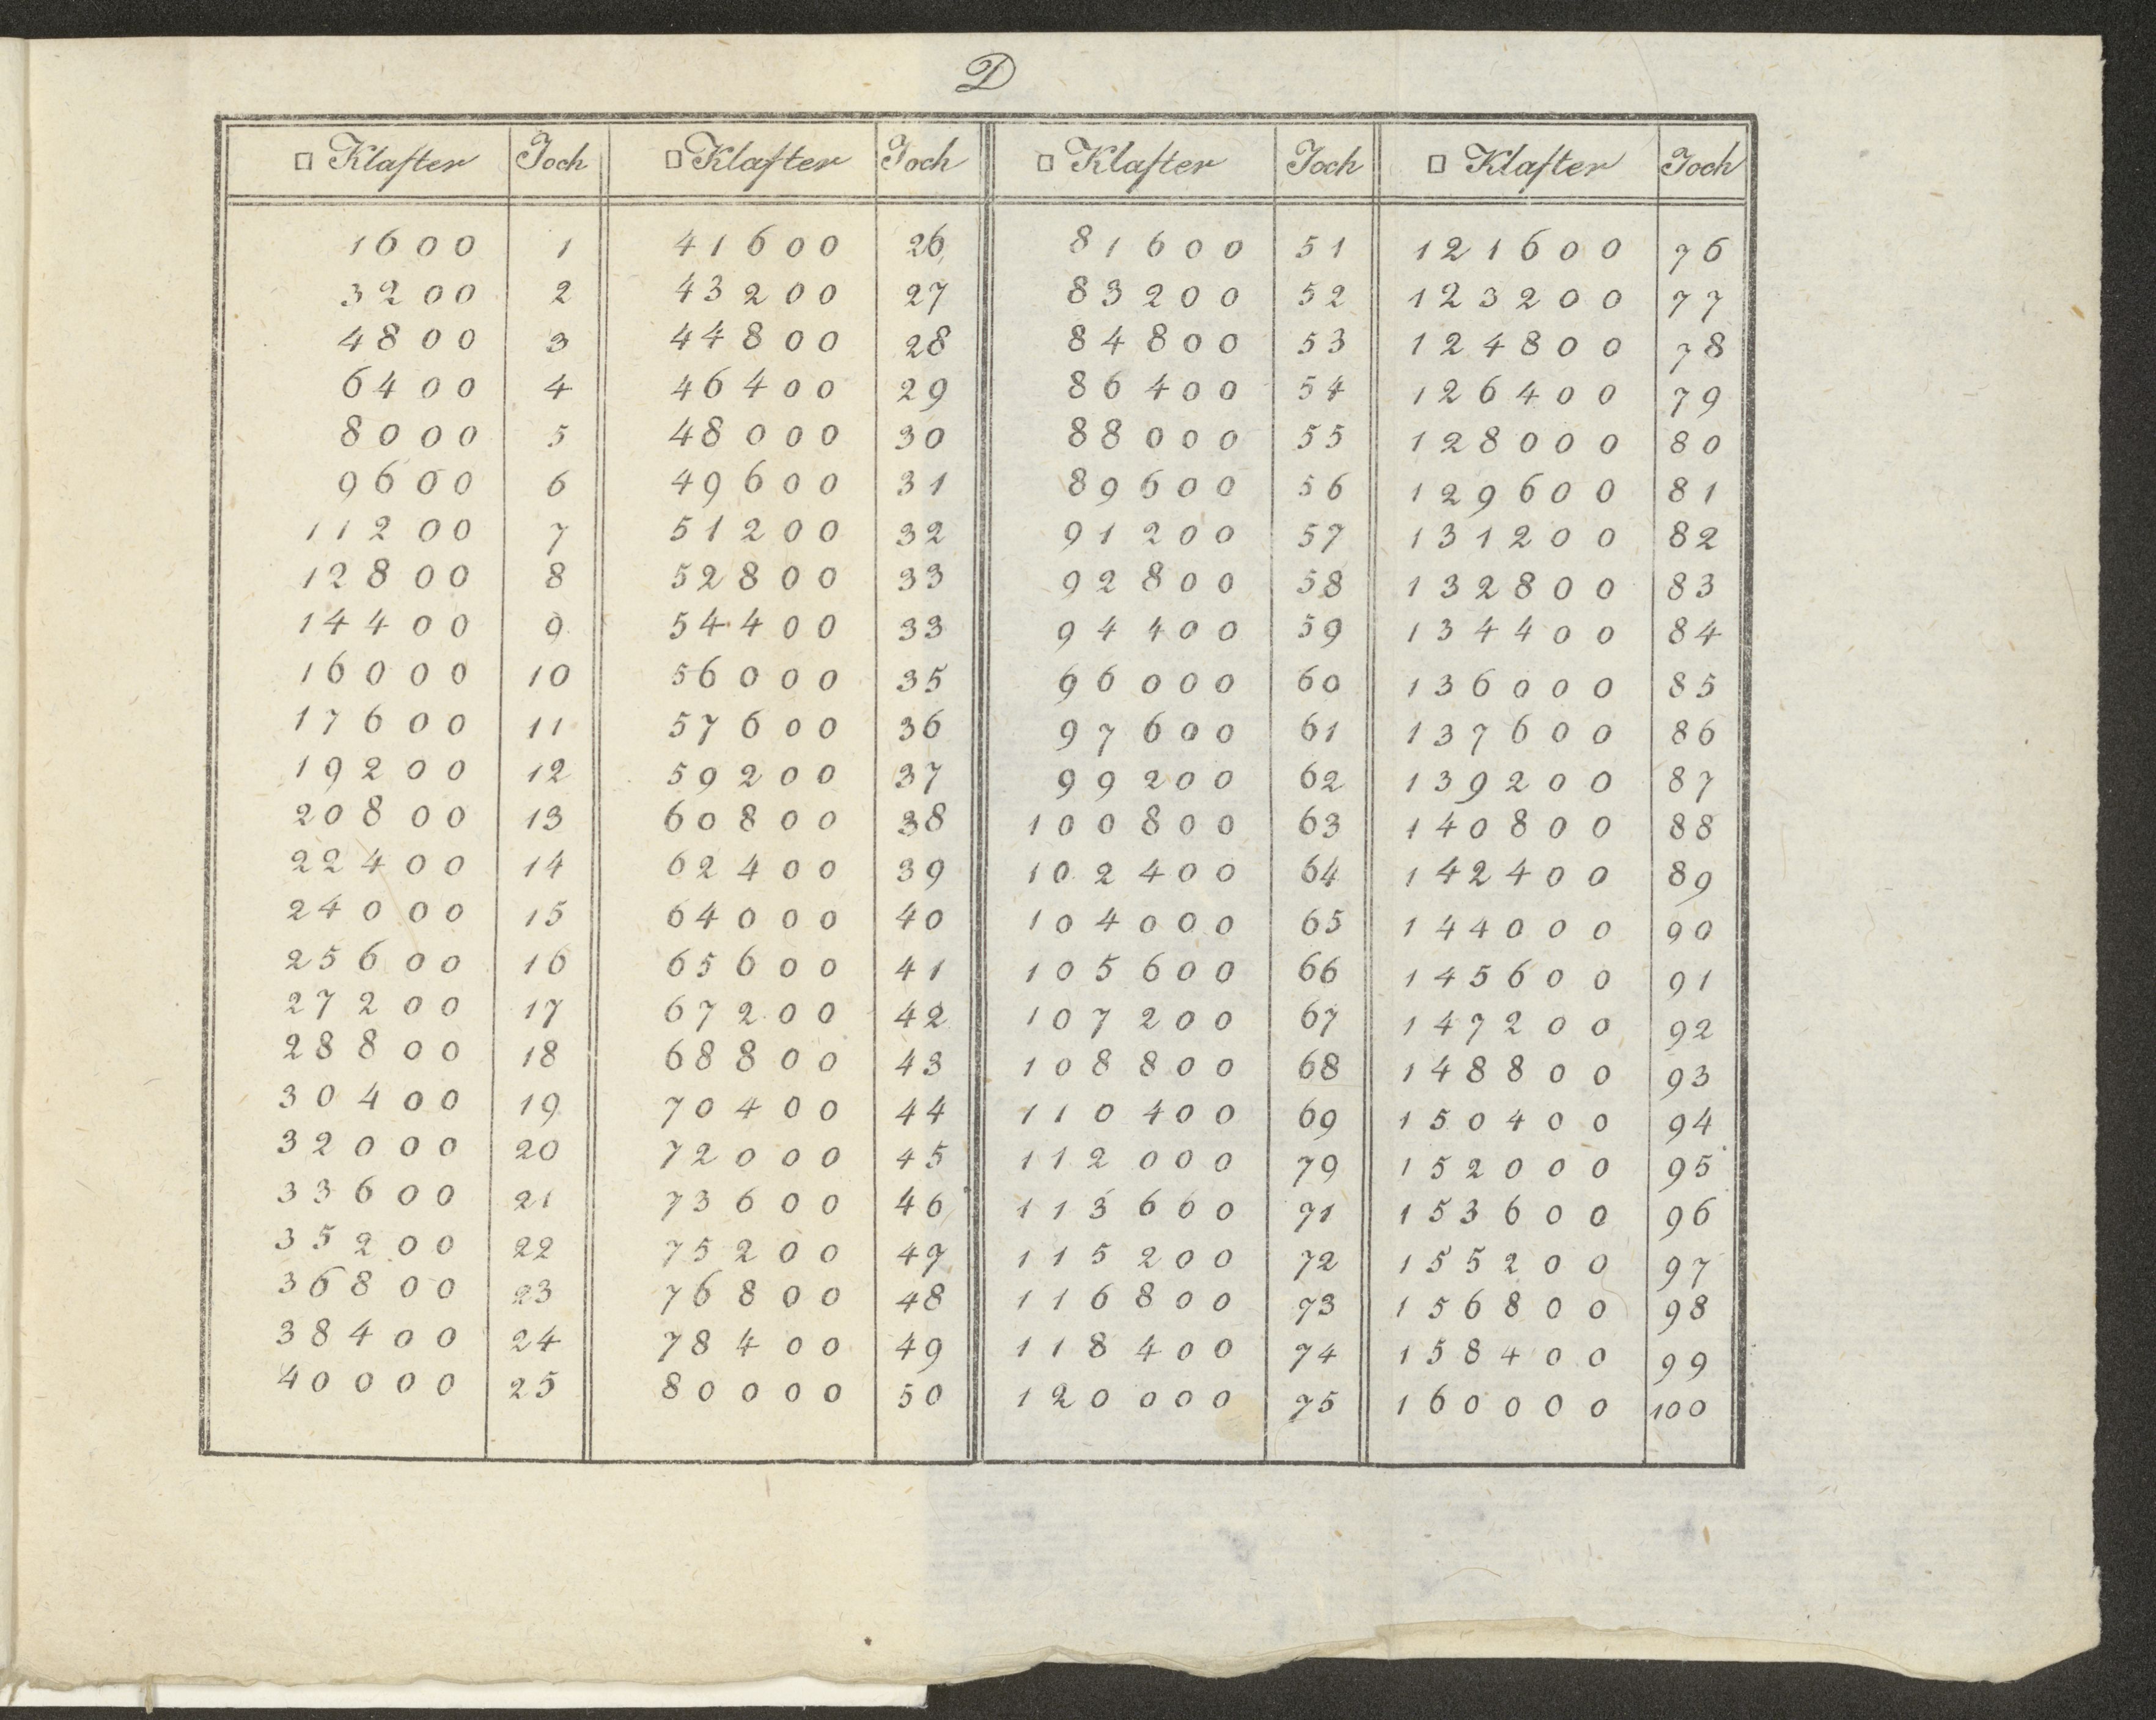 D
□ Klafter Joch □ Klafter Joch □ Klafter Joch □ Klafter Joch
1600 1 41600 26 81600 51 121600 76
3200 2 43200 27 83200 52 123200 77
4800 3 44800 28 84800 53 124800 78
6400 4 46400 29 86400 54 126400 79
8000 5 48000 30 88000 55 128000 80
9600 6 49600 31 89600 56 129600 81
11200 7 51200 32 91200 57 131200 82
12800 8 52800 33 92800 58 132800 83
14400 9 54400 33 94400 59 134400 84
16000 10 56000 35 96000 60 136000 85
17600 11 57600 36 97600 61 137600 86
19200 12 59200 37 99200 62 139200 87
20800 13 60800 38 100800 63 140800 88
22400 14 62400 39 102400 64 142400 89
24000 15 64000 40 104000 65 144000 90
25600 16 65600 41 105600 66 145600 91
27200 17 67200 42 107200 67 147200 92
28800 18 68800 43 108800 68 148800 93
30400 19 70400 44 110400 69 150400 94
32000 20 72000 45 112000 79 152000 95
33600 21 73600 46 113600 71 153600 96
35200 22 75200 47 115200 72 155200 97
36800 23 76800 48 116800 73 156800 98
38400 24 78400 49 118400 74 158400 99
40000 25 80000 50 120000 75 160000 100